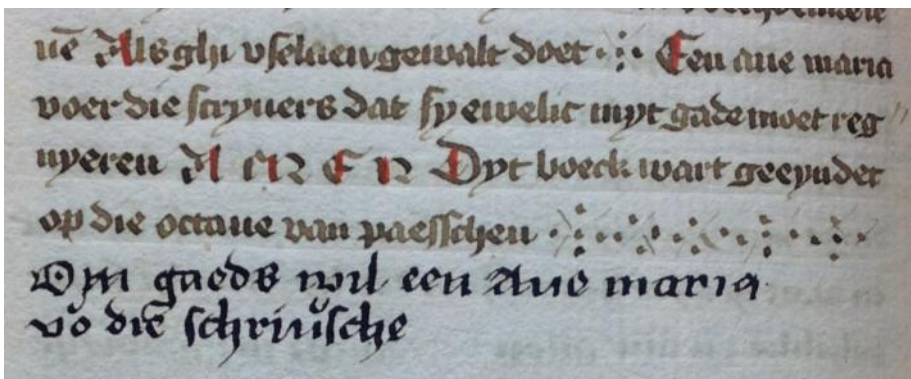 uē Als ghi v selaen gewalt doet Een aue maria
voer die scryuers dat sy ewelic myt gade moet reg
nyeren A M E N Dyt boeck wart geeyndet
op die octaue van paesschen
Om gaeds wil een Aue maria
vo die schriuersche